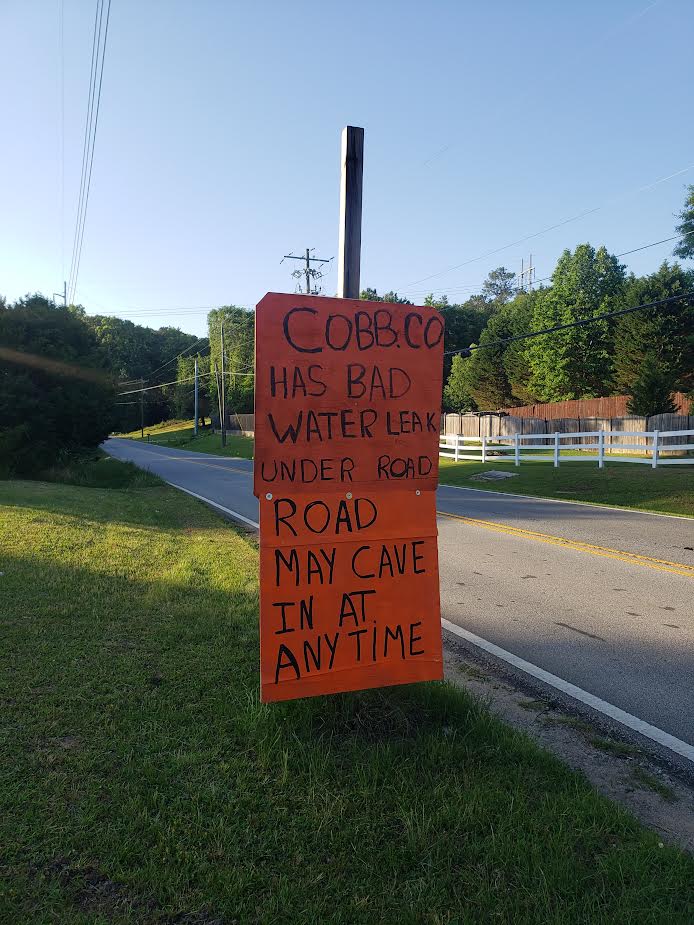 COBB.CO
HAS BAD
WATER LEAK
UNDER ROAD
ROAD
MAY CAVE
IN AT
ANYTIME